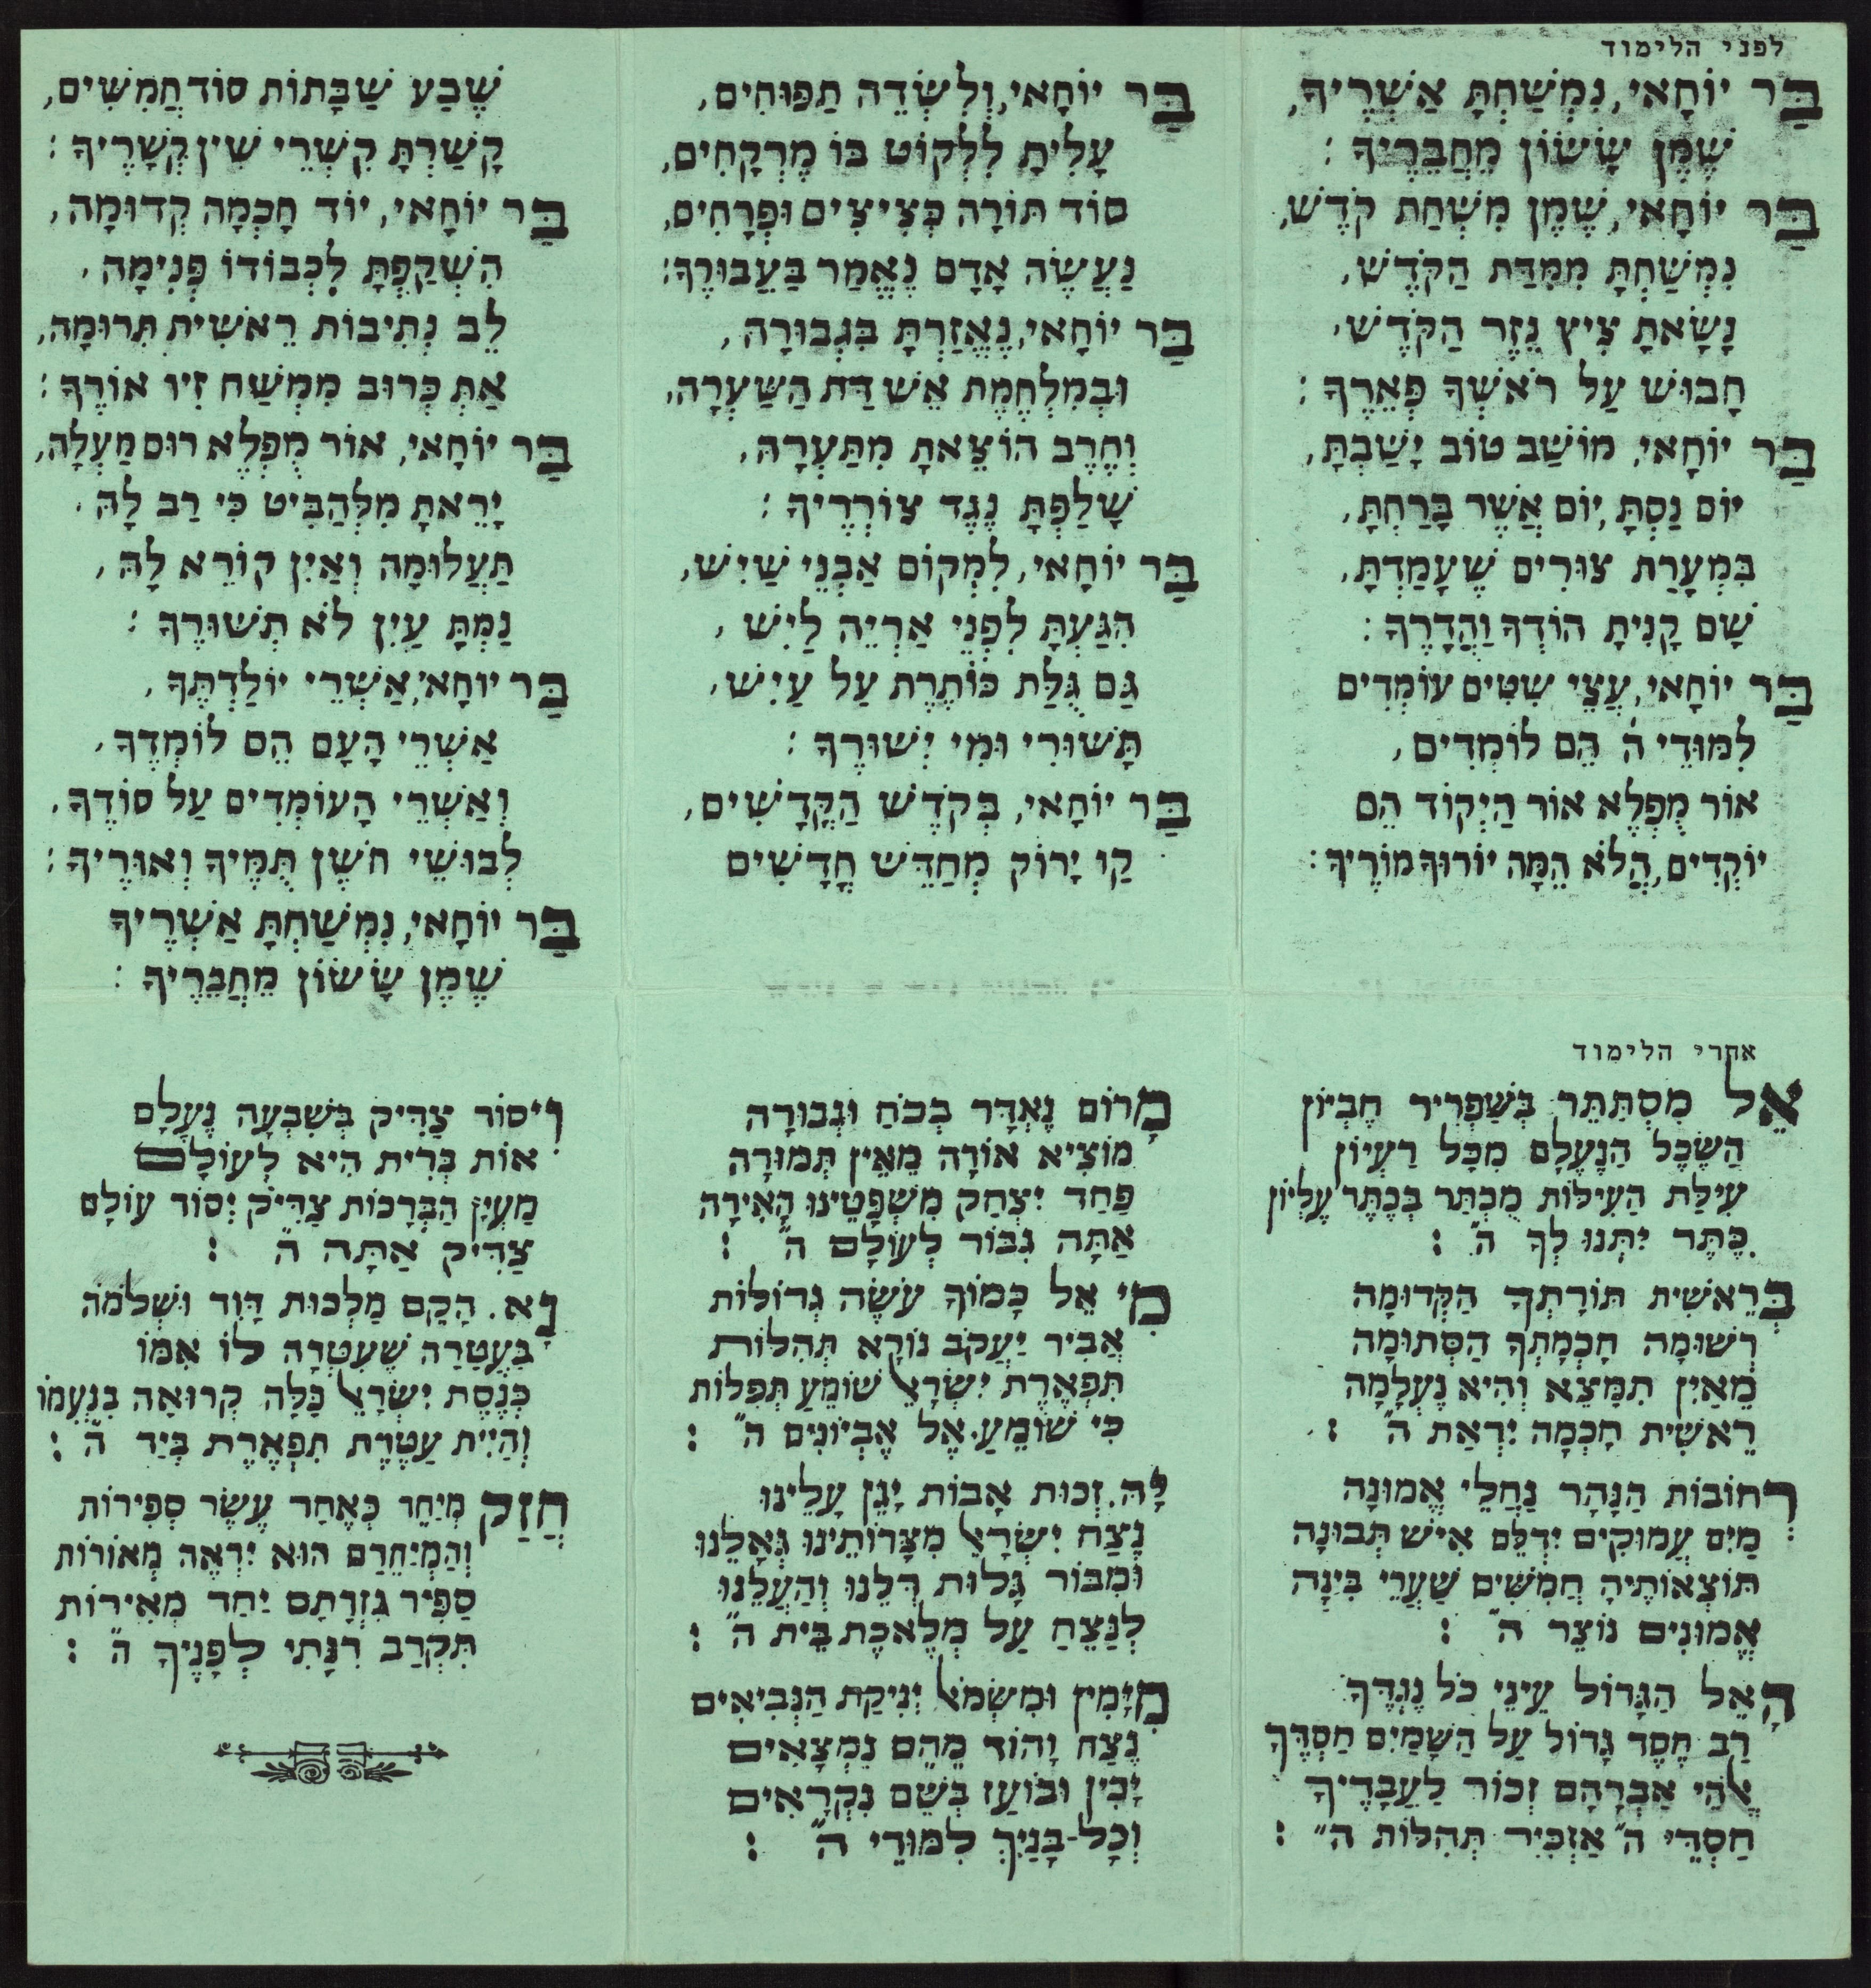 לפני הלימוד
בַּר יוֹחָאי, נִמְשַׁחְתָּ אַשְׁרֶיךָ,
שֶׁמֶן שָׂשׂוֹן מֵחֲבֵרֶיךָ:
בַּר יוֹחָאי, שֶׁמֶן מִשְׁחַת קֹדֶשׁ,
נִמְשַׁחְתָּ מִמִּדַּת הַקֹּדֶשׁ,
נָשָׂאתָ צִיץ נֵזֶר הַקֹּדֶשׁ,
חָבוּשׁ עַל רֹאשְׁךָ פְּאֵרֶךָ:
בַּר יוֹחָאי, מוֹשַׁב טוֹב יָשַׁבְתָּ,
יוֹם נַסְתָּ, יוֹם אֲשֶׁר בָּרַחְתָּ,
בִּמְעָרַת צוּרִים שֶׁעָמַדְתָּ,
שָׁם קָנִיתָ הוֹדְךָ וַהֲדָרֶךָ:
בַּר יוֹחָאי, עֲצֵי שִׁטִּים עוֹמְדִים
לִמּוּדֵי ה' הֵם לוֹמְדִים,
אוֹר מֻפְלֶא אוֹר הַיְקוֹד הֵם
יוֹקְדִים, הֲלֹא הֵמָּה יוֹרוּךָ מוֹרֶיךָ:
בַּר יוֹחָאי, וְלִשְׂדֵה תַפּוּחִים,
עָלִיתָ לִלְקוֹט בּוֹ מֶרְקָחִים,
סוֹד תּוֹרָה כְּצִיצִים וּפְרָחִים,
נַעֲשֶׂה אָדָם נֶאֱמַר בַּעֲבוּרֶךָ:
בַּר יוֹחָאי, נֶאֱזַרְתָּ בִּגְבוּרָה,
וּבְמִלְחֶמֶת אֵשׁ דַּת הַשַּׁעְרָה,
וְחֶרֶב הוֹצֵאתָ מִתַּעְרָהּ,
שָׁלַפְתָּ נֶגֶד צוֹרְרֶיךָ:
בַּר יוֹחָאי, לִמְקוֹם אַבְנֵי שַׁיִשׁ,
הִגַּעְתָּ לִפְנֵי אַרְיֵה לַיִשׁ,
גַּם גֻּלַּת כּוֹתֶרֶת עַל עַיִשׁ,
תָּשׁוּרִי וּמִי יְשׁוּרֶךָ:
בַּר יוֹחָאי, בְּקֹדֶשׁ הַקֳּדָשִׁים,
קַו יָרוֹק מְחַדֵּשׁ חֳדָשִׁים
שֶׁבַע שַׁבָּתוֹת סוֹד חֲמִשִּׁים,
קָשַׁרְתָּ קִשְׁרֵי שִׁין קְשָׁרֶיךָ:
בַּר יוֹחָאי, יוֹד חָכְמָה קְדוּמָה,
הִשְׁקַפְתָּ לִכְבוֹדוֹ פְּנִימָה,
לֵב נְתִיבוֹת רֵאשִׁית תְּרוּמָה,
אַתְּ כְּרוּב מִמְשַׁח זִיו אוֹרֶךָ:
בַּר יוֹחָאי, אוֹר מֻפְלֶא רוּם מַעְלָה,
יָרֵאתָ מִלְּהַבִּיט כִּי רַב לָהּ,
תַּעֲלוּמָה וְאַיִן קוֹרֵא לָהּ,
נַמְתָּ עַיִן לֹא תְשׁוּרֶךָ:
בַּר יוֹחָאי, אַשְׁרֵי יוֹלַדְתֶּךָ,
אַשְׁרֵי הָעָם הֵם לוֹמְדֶךָ,
וְאַשְׁרֵי הָעוֹמְדִים עַל סוֹדֶךָ,
לְבוּשֵׁי חֹשֶׁן תֻּמֶּיךָ וְאוּרֶיךָ:
בַּר יוֹחָאי, נִמְשַׁחְתָּ אַשְׁרֶיךָ
שֶׁמֶן שָׂשׂוֹן מֵחֲבֵרֶיךָ:
אחרי הלימוד
אֵל מִסְתַּתֵּר בְּשַׁפְרִיר חֶבְיוֹן
הַשֵּׂכֶל הַנֶּעֱלָם מִכָּל רַעְיוֹן
עִילַת הָעִילוֹת מֻכְתַּר בְּכֶתֶר עֶלְיוֹן
כֶּתֶר יִתְּנוּ לְךָ ה':
בְּרֵאשִׁית תּוֹרָתְךָ הַקְּדוּמָה
רְשׁוּמָה חָכְמָתְךָ הַסְּתוּמָה
מֵאַיִן תִּמָּצֵא וְהִיא נֶעְלָמָה
רֵאשִׁית חָכְמָה יִרְאַת ה':
רְחוֹבוֹת הַנָּהָר נַחֲלֵי אֱמוּנָה
מַיִם עֲמוּקִים יִדְלֵם אִישׁ תְּבוּנָה
תּוֹצְאוֹתֶיהָ חֲמִשִּׁים שַׁעֲרֵי בִינָה
אֱמוּנִים נוֹצֵר ה':
הָאֵל הַגָּדוֹל עֵינֵי כֹל נֶגְדֶּךָ
רַב חֶסֶד גָּדוֹל עַל הַשָּׁמַיִם חַסְדֶּךָ
אֱלֹהֵי אַבְרָהָם זְכוֹר לַעֲבָדֶיךָ
חַסְדֵי ה' אַזְכִּיר תְּהִלּוֹת ה':
מָרוֹם נֶאְדָּר בְּכֹחַ וּגְבוּרָה
מוֹצִיא אוֹרָה מֵאֵין תְּמוּרָה
פַּחַד יִצְחָק מִשְׁפָּטֵינוּ הָאִירָה
אַתָּה גִבּוֹר לְעוֹלָם ה':
מִי אֵל כָּמוֹךָ עֹשֶׂה גְדוֹלוֹת
אֲבִיר יַעֲקֹב נוֹרָא תְהִלּוֹת
תִּפְאֶרֶת יִשְׂרָאֵל שׁוֹמֵעַ תְּפִלּוֹת
כִּי שׁוֹמֵעַ אֶל אֶבְיוֹנִים ה':
יָהּ. זְכוּת אָבוֹת יָגֵן עָלֵינוּ
נֶצַח יִשְׂרָאֵל מִצָּרוֹתֵינוּ גְּאָלֵנוּ
וּמִבּוֹר גָּלוּת דְּלֵנוּ וְהַעֲלֵנוּ
לְנַצֵּחַ עַל מְלֶאכֶת בֵּית ה':
מִיָּמִין וּמִשְּׂמֹאל יְנִיקַת הַנְּבִיאִים
נֶצַח וָהוֹד מֵהֶם נִמְצָאִים
יָכִין וּבוֹעַז בְּשֵׁם נִקְרָאִים
וְכָל-בָּנַיִךְ לִמּוּדֵי ה':
וִיסוֹד צַדִּיק בְּשִׁבְעָה נֶעְלָם
אוֹת בְּרִית הִיא לְעוֹלָם
מַעְיַן הַבְּרָכוֹת צַדִּיק יְסוֹד עוֹלָם
צַדִּיק אַתָּה ה':
נָא. הָקֵם מַלְכוּת דָּוִד וּשְׁלֹמֹה
בַּעֲטָרָה שֶׁעִטְּרָה לּוֹ אִמּוֹ
כְּנֶסֶת יִשְׂרָאֵל כַּלָּה קְרוּאָה בִנְעִמוֹ
וְהָיִית עֲטֶרֶת תִּפְאֶרֶת בְּיַד ה':
חֲזַק מְיַחֵד כְּאֶחָד עֶשֶׂר סְפִירוֹת
וְהַמְיַחֲדָם הוּא יִרְאֶה מְאוֹרוֹת
סַפִּיר גִּזְרָתָם יַחַד מְאִירוֹת
תִּקְרַב רִנָּתִי לְפָנֶיךָ ה':